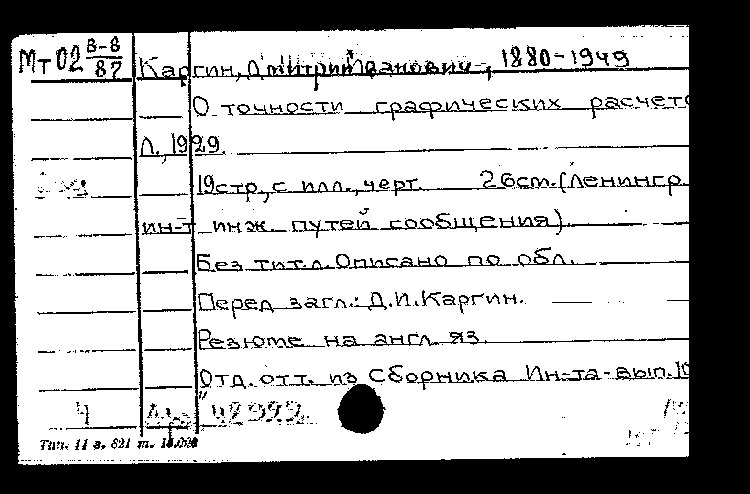 Мт02 8-8/87
Каргин, Дмитрий Иванович, 1880-1949
О точности графических расчето
Л., 1929.
19стр., с илл., черт. 26см. (Ленингр.
ин-т инж. путей сообщения).
Без тит.л. Описано по обл.
Перед загл.: Д.И.Каргин.
Резюме на англ. яз.
Отд. отт. из Сборника Ин-та-вып.10
Ч
Тип. 11 з. 821 т.